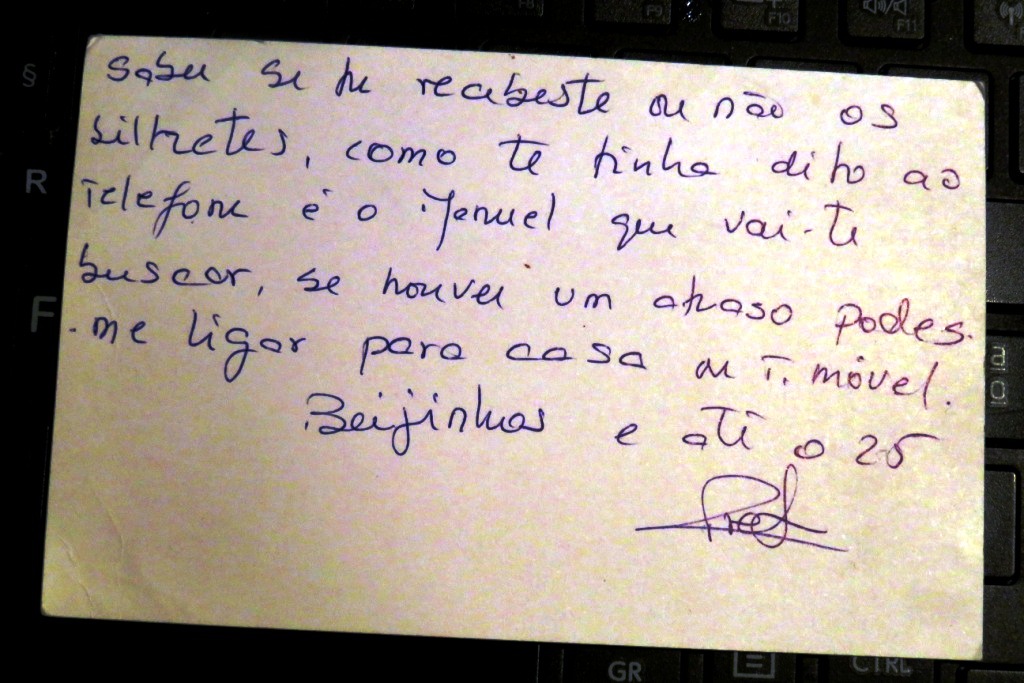 F8
F9
F10
F11
§
R
F
a
GR
CTRL
saber se tu recebeste ou não os
bilhetes, como te tinha dito ao
telefone é o Manuel que vai-te
buscar, se houver um atraso podes
-me ligar para casa ou T. móvel.
Beijinhos e até o 25